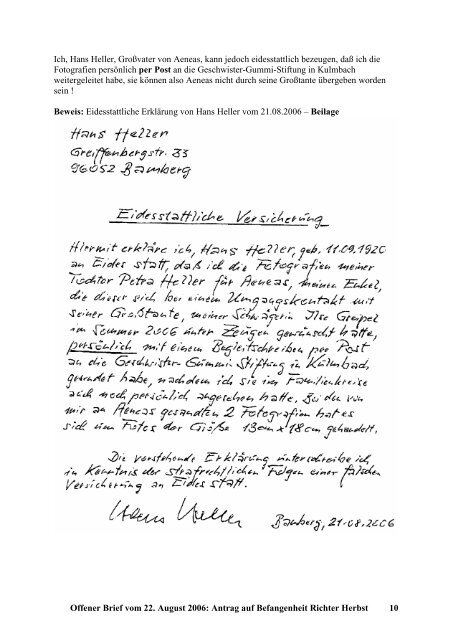 Ich, Hans Heller, Großvater von Aeneas, kann jedoch eidesstattlich bezeugen, daß ich die
Fotografien persönlich per Post an die Geschwister-Gummi-Stiftung in Kulmbach
weitergeleitet habe, sie können also Aeneas nicht durch seine Großtante übergeben worden
sein !
Beweis: Eidesstattliche Erklärung von Hans Heller vom 21.08.2006 – Beilage
Hans Heller
Greiffenbergstr. 33
96052 Bamberg
Eidesstattliche Versicherung
Hiermit erkläre ich, Hans Heller, geb. 11.09.1920
an Eides statt, daß ich die Fotografien meiner
Tochter Petra Heller für Aeneas, meinen Enkel,
die dieser sich bei einem Umgangskontakt mit
seiner Großtante, meiner Schwägerin Ilse
im Sommer 2006 unter Zeugen gewünscht hatte,
persönlich mit einem Begleitschreiben per Post
an die Geschwister Gummi-Stiftung in Kulmbach
gesendet habe, nachdem ich sie im Familienkreise
auch noch persönlich angesehen hatte. Bei den von
mir an Aeneas gesandten 2 Fotografien hat es
sich um Fotos der Größe 13cm x 18cm gehandelt.
Die vorstehende Erklärung unterschreibe ich,
in Kenntnis der strafrechtlichen Folgen einer falschen
Versicherung an Eides statt.
Hans Heller
Bamberg, 21.08.2006
Offener Brief vom 22. August 2006: Antrag auf Befangenheit Richter Herbst 10